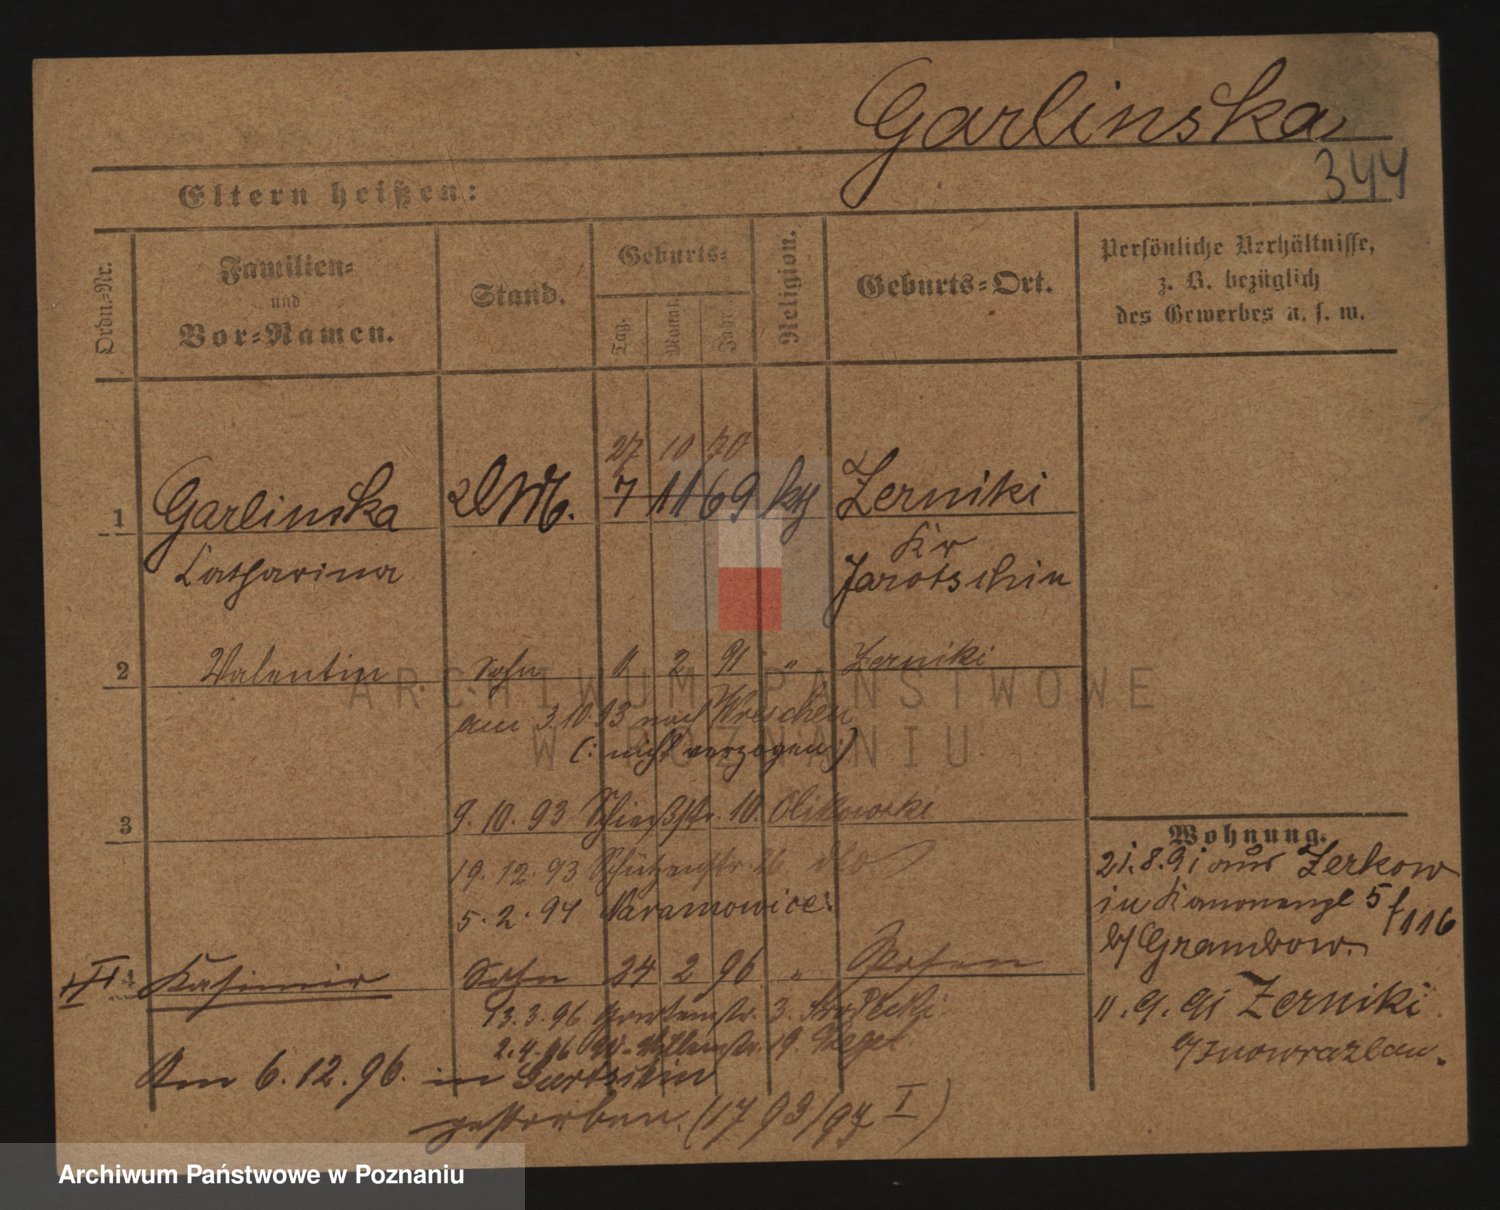 Garlinska
344
Eltern heißen:
Ordn.-Nr.
Familien-
und
Vor-Namen.
Stand.
Geburts-
Tag.
Monat.
Jahr.
Religion.
Geburts-Ort.
Persönliche Verhältnisse,
z. B. bezüglich
des Gewerbes u. s. w.
27 10 70
1 Garlinska 7 11 69 kg Zerniki
Catharina
Kr
Jarotschin
2 Valentin Sohn 11 2 91 " Zerniki
am 3.10.93 nach Wreschen
(: nicht verzogen :)
3
9. 10. 93 Schießstr. 10.
19. 12. 93 Schützenstr.
5. 2. 94 Naramowice.
4 Kasimir Sohn 24 2 96 " Posen
13. 3. 96 Gartenstr. 3.
2. 4. 96 19.
Am 6. 12. 96. in
gestorben. (1793/97 I)
Wohnung.
21. 8. 91 aus Zerkow
in Kanonenpl 5 f 116
b/ Grambow.
11. 9. 91 Zerniki
Inowrazlaw.
ARCHIWUM PAŃSTWOWE
W POZNANIU
Archiwum Państwowe w Poznaniu